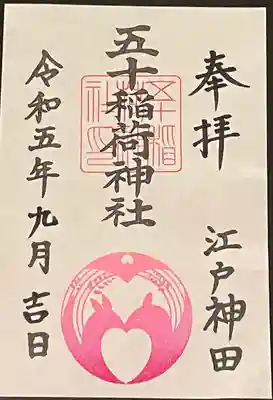 奉拝
江戸神田
五十稲荷神社
令和五年九月吉日